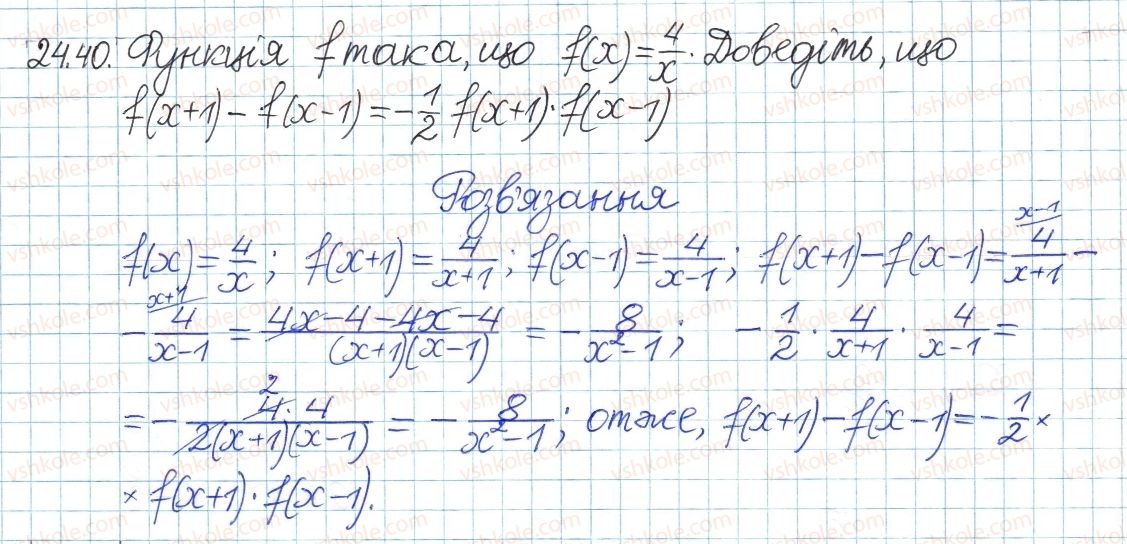 24.40. Функція f така, що f(x) = 4/x. Доведіть, що
f(x+1) − f(x−1) = −1/2 f(x+1)·f(x−1)
Розв'язання
f(x) = 4/x; f(x+1) = 4/(x+1); f(x−1) = 4/(x−1); f(x+1) − f(x−1) = x−1/ 4/(x+1) −
− x+1/ 4/(x−1) = (4x−4−4x−4)/((x+1)(x−1)) = − 8/(x²−1); − 1/2 · 4/(x+1) · 4/(x−1) =
= − (2 4·4)/(2(x+1)(x−1)) = − 8/(x²−1); отже, f(x+1) − f(x−1) = − 1/2 ×
× f(x+1)·f(x−1).
vshkole.com